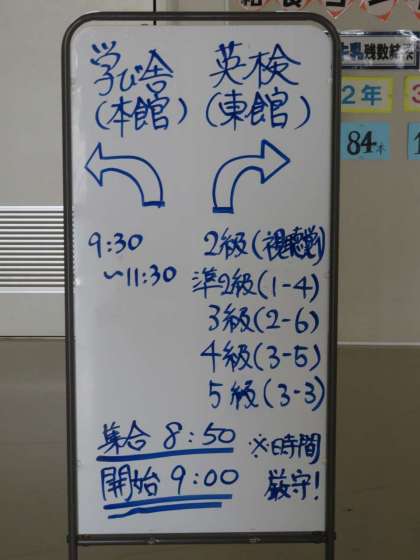 学び舎 英検
(本館) (東館)
9:30
～11:30
2級(視聴覚)
準2級(1-4)
3級(2-6)
4級(3-5)
5級(3-3)
集合 8:50
開始 9:00
※時間
厳守!
残数
2年
84本